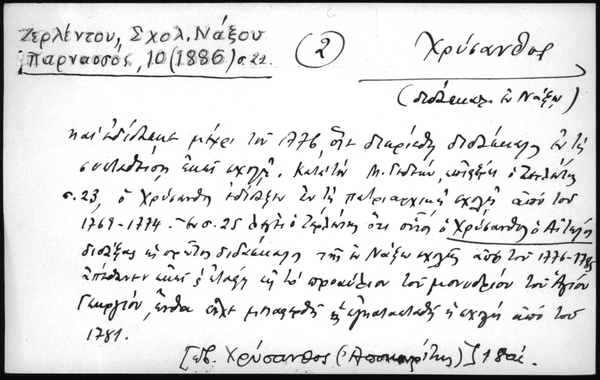 Ζερλέντου, Σχολ. Νάξου
Παρνασσός, 10 (1886) σ. 22.
2
Χρύσανθος
(διδάσκαλ. ἐν Νάξῳ)
καὶ ἐδίδαξε μέχρι τοῦ 1776, ὅτε διωρίσθη διδάσκαλος ἐν τῇ
συσταθείσῃ ἐκεῖ σχολῇ. Κατὰ τὸν Μ. Γεδεών, ὁ Ζερλέντης
σ. 23, ὁ Χρύσανθος ἐδίδαξεν ἐν τῇ πατριαρχικῇ σχολῇ ἀπὸ τοῦ
1769-1774. Ἐν σ. 25 λέγει ὁ Ζερλέντης ὅτι οὗτος ὁ Χρύσανθος ὁ Αἰτωλὸς
διδάξας ὡς πρῶτος διδάσκαλος τῆς ἐν Νάξῳ σχολῆς ἀπὸ τοῦ 1776-1785
ἀπέθανεν ἐκεῖ ἐτάφη εἰς τὸ προαύλιον τοῦ μονυδρίου τοῦ Ἁγίου
Γεωργίου, ἔνθα εἶχε μεταφερθῆ ἐγκατασταθῆ ἡ σχολὴ ἀπὸ τοῦ
1781.
Χρύσανθος